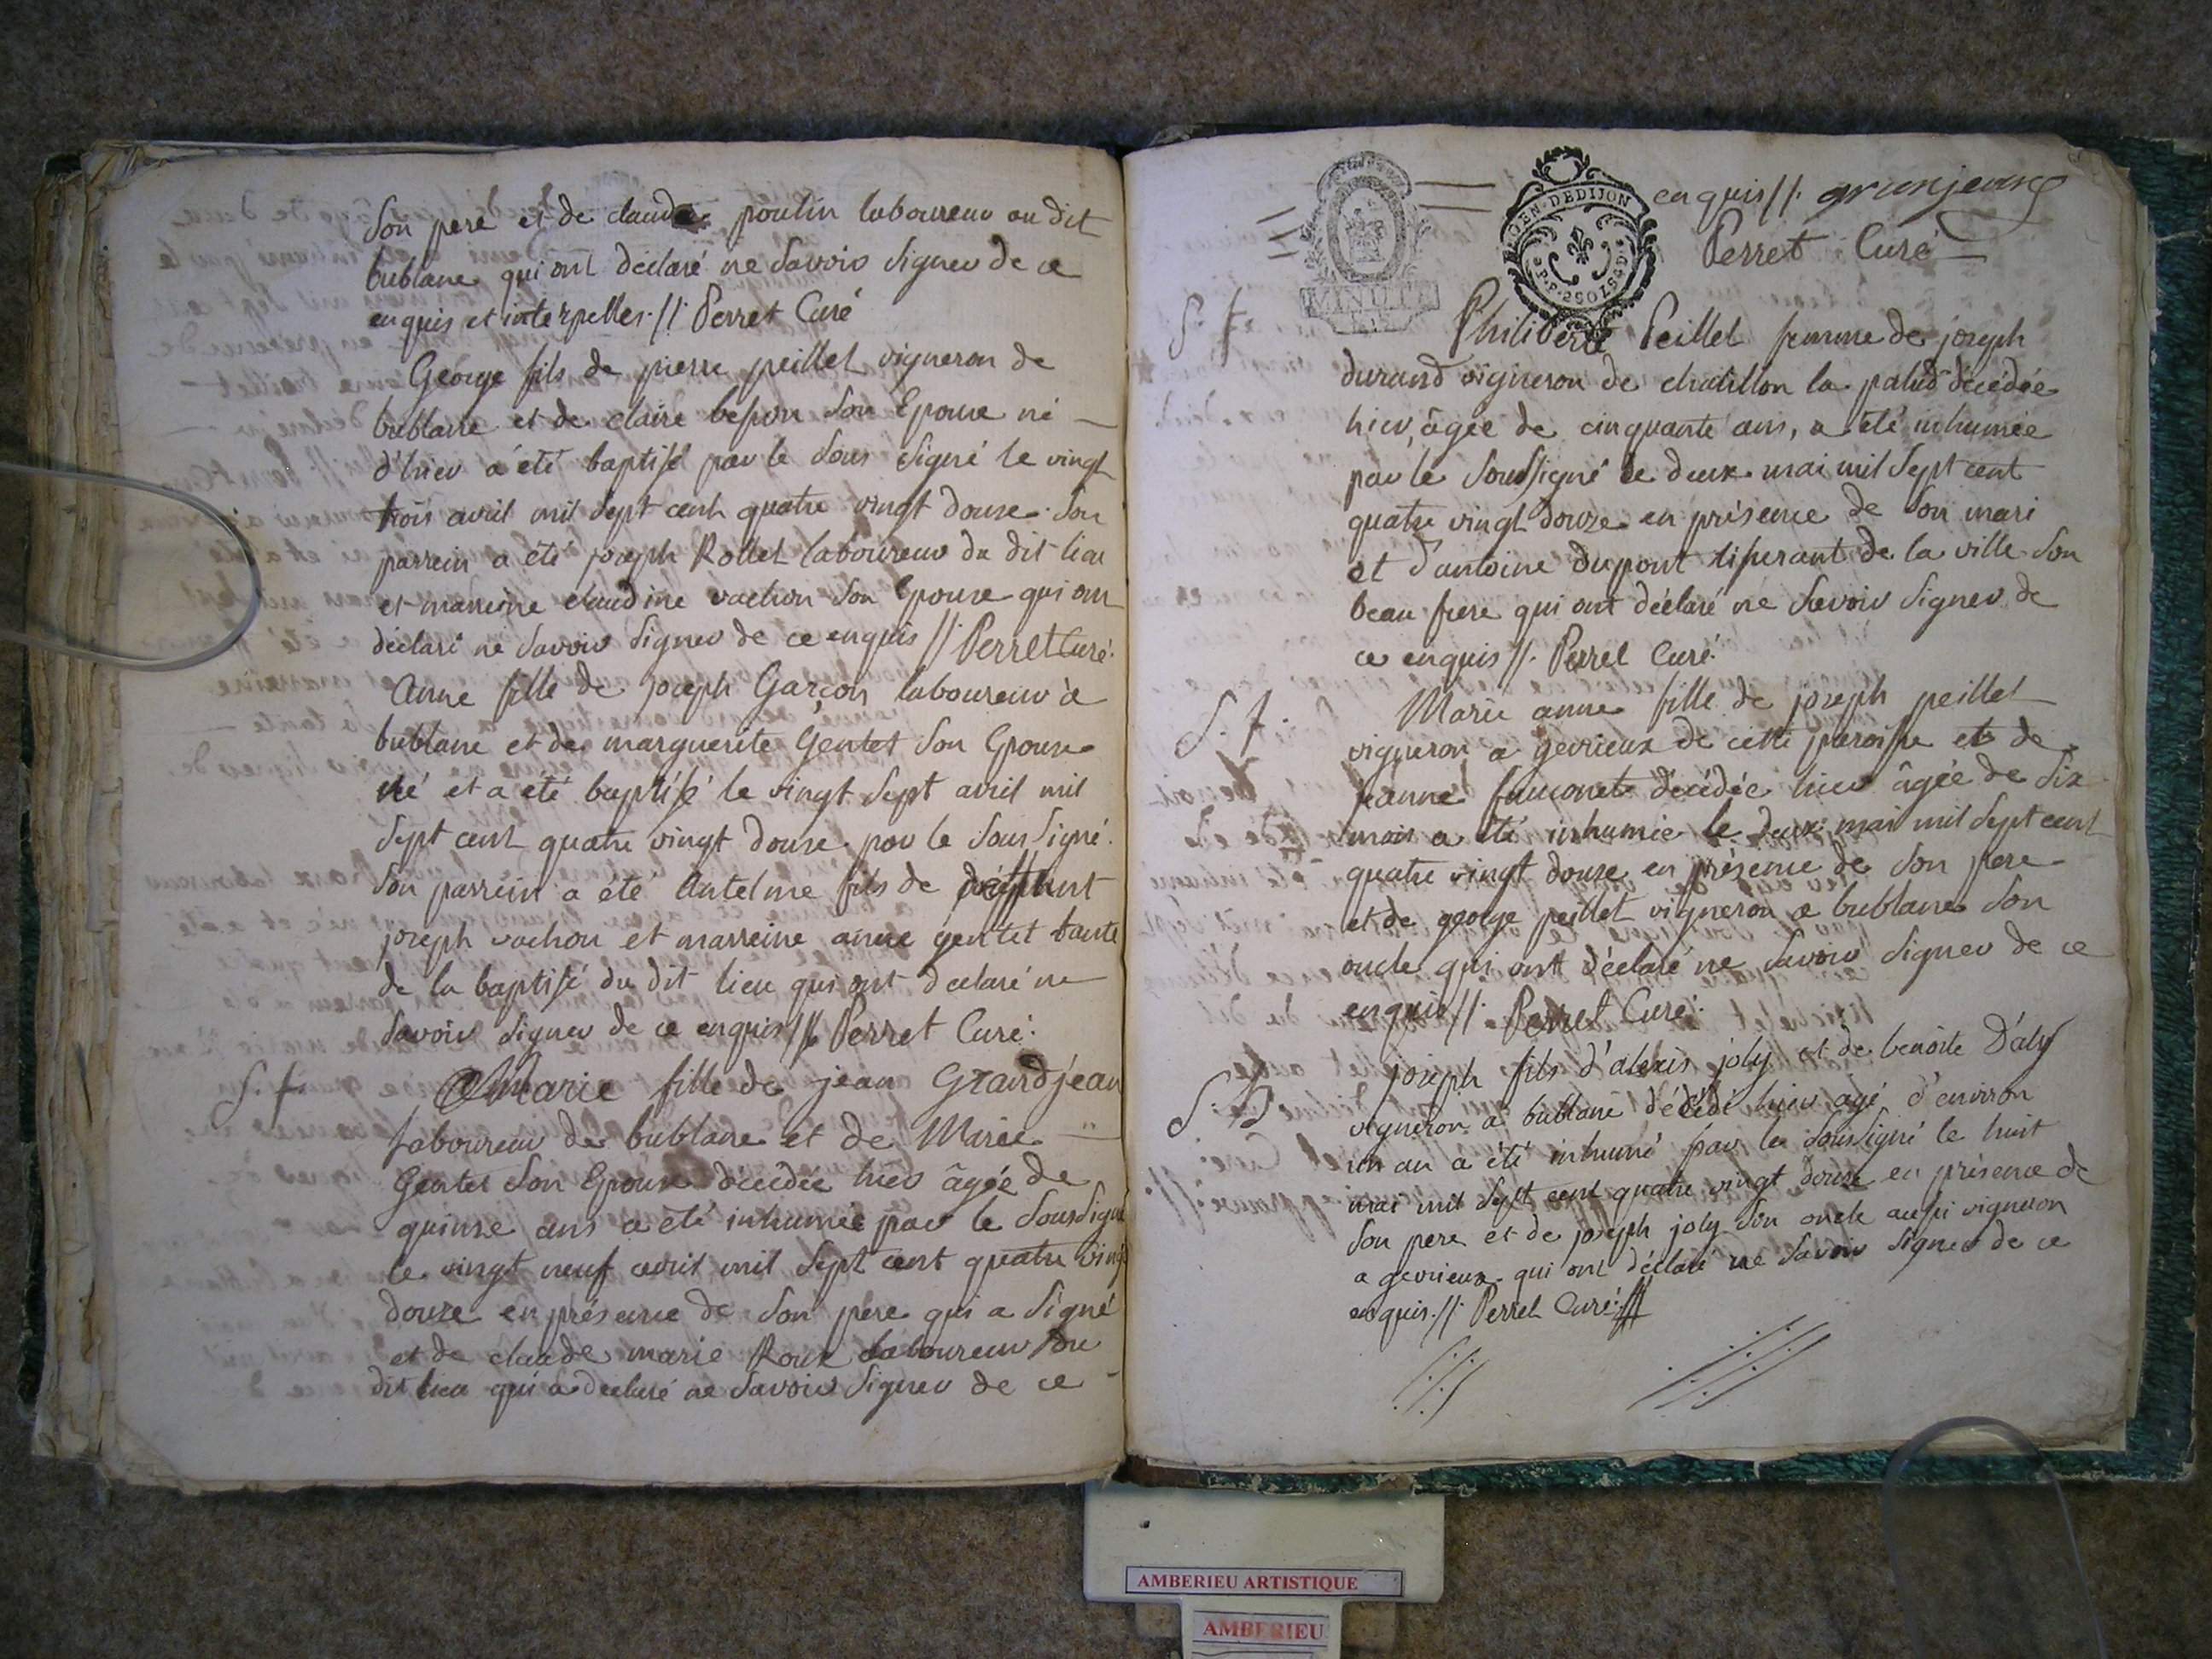 Son pere et de claude poulin laboureur au dit
bublane qui ont déclaré ne Savoir Signer de ce
enquis et interpelles.//. Perret Curé
George fils de pierre peillet vigneron de
bublane et de claire besson Son Epouse né
d'hier a été baptisé par le Sous Signé le vingt
trois avril mil Sept cent quatre vingt douze. Son
parrein a été joseph Rollet laboureur du dit lieu
et marreine claudine vachon Son Epouse qui ont
déclaré ne Savoir Signer de ce enquis //. Perret Curé.
Anne fille de joseph Garçon laboureur a
bublane et de marguerite Gentet Son Epouse
né et a été baptisé le vingt Sept avril mil
Sept cent quatre vingt douze par le Sous Signé.
Son parrein a été Antelme fils de
joseph vachon et marreine anne gentet tante
de la baptisé du dit lieu qui ont declaré ne
Savoir Signer de ce enquis // Perret Curé.
S. f. Marie fille de jean Grandjean
Laboureur de bublane et de Marie
Gentet Son Epouse décédée hier âgée de
quinze ans a été inhumée par le SousSigné
le vingt neuf avril mil Sept cent quatre vingt
douze en présence de Son pere qui a Signé
et de claude marie Roux laboureur du
dit lieu qui a declaré ne Savoir Signer de ce
MINUTE
MOYEN-DEDIJON
enquis //. granjean
Perret Curé
S. f. Philiberte Peillet femme de joseph
durand vigneron de chatillon la palud décédée
hier, âgée de cinquante ans, a été inhumée
par le SousSigné le deux mai mil Sept cent
quatre vingt douze en présence de Son mari
et d'antoine dupont tisserant de la ville Son
beau frere qui ont déclaré ne Savoir Signer de
ce enquis //. Perret Curé.
S. f. Marie anne fille de joseph peillet
vigneron a gevrieux de cette paroisse et de
jeanne décédée hier âgée de Six
mois a été inhumée le deux mai mil Sept cent
quatre vingt douze en présence de Son pere
et de george peillet vigneron a bublane Son
oncle qui ont déclaré ne Savoir Signer de ce
enquis //. Perret Curé.
joseph fils d'alexis joly et de benoite D'aly
vigneron a bublane décédé hier agé d'environ
un an a été inhumé par le SousSigné le huit
mai mil Sept cent quatre vingt douze en présence de
Son pere et de joseph joly Son oncle aussi vigneron
a gevrieux qui ont déclaré ne Savoir Signer de ce
enquis.//. Perret Curé.
AMBERIEU ARTISTIQUE
AMBERIEU